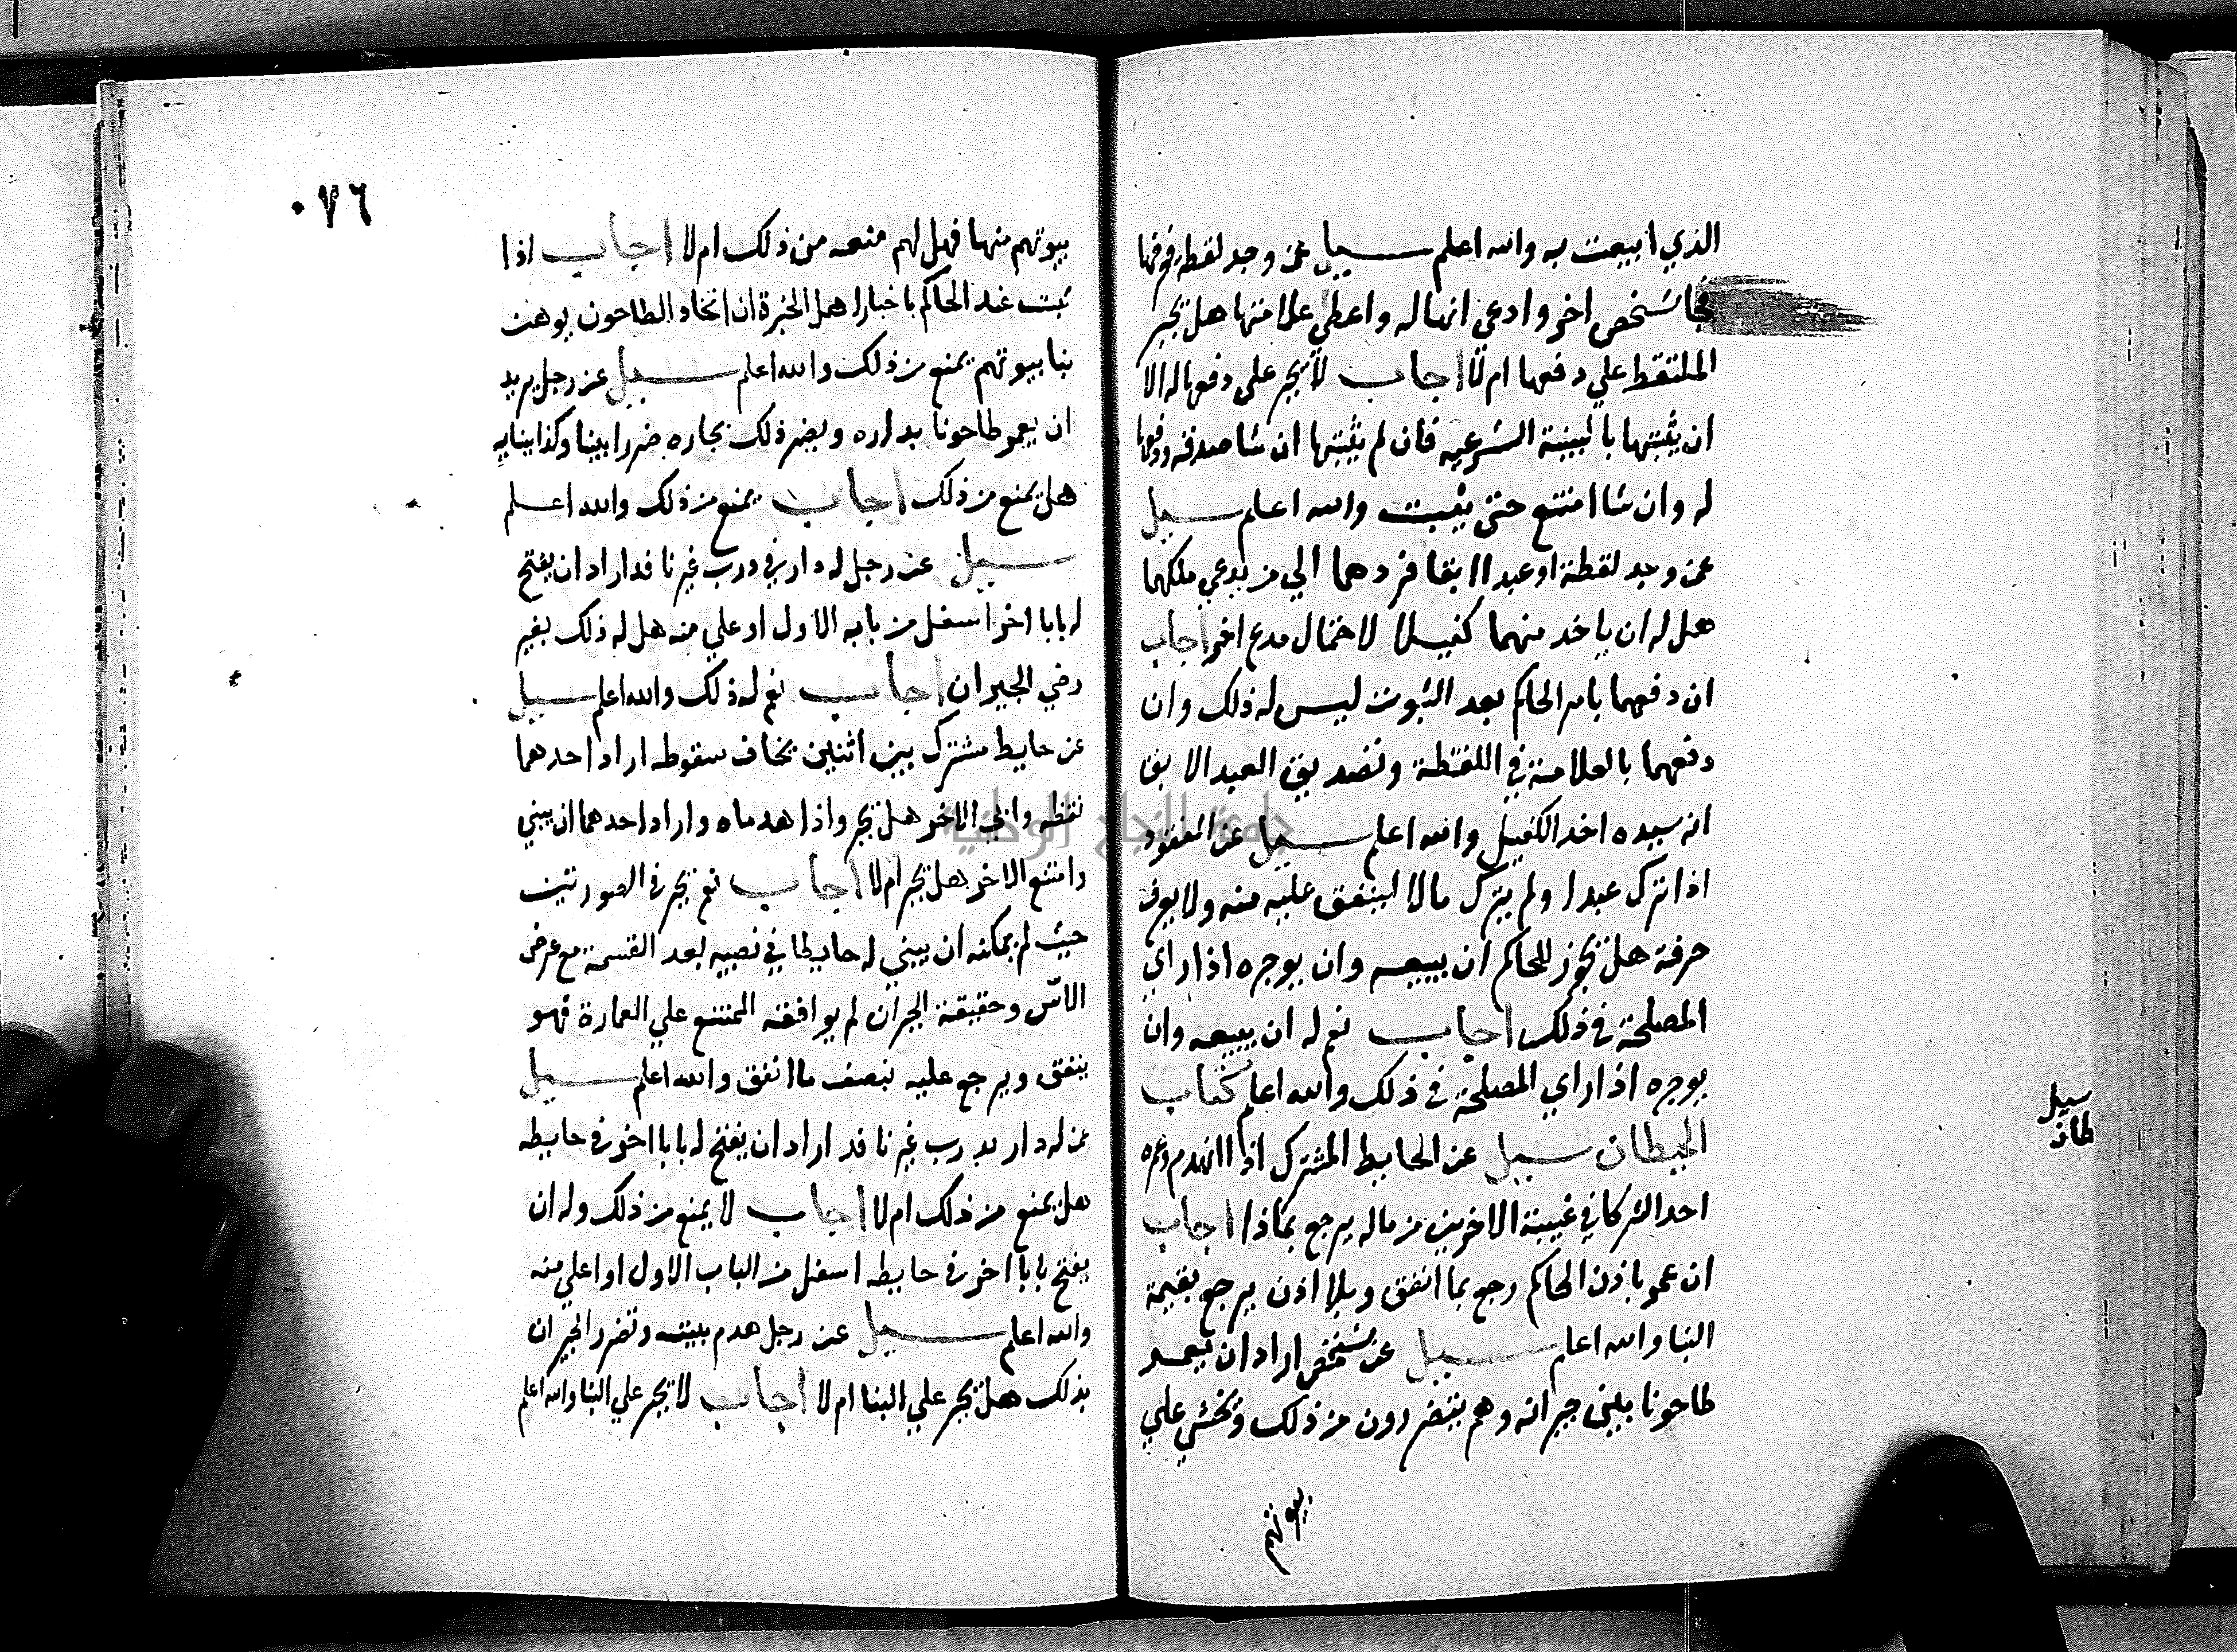 الذي ابيعت به والله اعلم سيل عمن وجد لقطة فرفها
فجا شخص اخر وادعي انها له واعطي علامتها هل يجبر
الملتقط علي دفعها ام لا اجاب لا يجبر علي دفعها له الا
ان يثبتها بالبينة الشرعيه فان لم يثبتها ان شا صدقه ودفعها
له وان شا امتنع حتي يثبت والله اعلم سيل
عمن وجد لقطة او عبدا ابقا فردهما الي من يدعي ملكهما
هل له ان ياخد منهما كفيلا لاحتمال مدع اخر اجاب
ان دفعهما بامر الحاكم بعد الثبوت ليس له ذلك وان
دفعهما بالعلامة في اللقطة وتصديق العبد الابق
انه سيده اخد الكفيل والله اعلم سيل عن المفقود
اذا ترك عبدا ولم يترك مالا لينفق عليه منه ولا يعرف
حرفة هل يجوز للحاكم ان يبيعه وان يوجره اذا راي
المصلحة في ذلك اجاب نعم له ان يبيعه وان
يوجره اذا راي المصلحة في ذلك والله اعلم كتاب
الحيطان سيل عن الحايط المشترك اذا انهدم وعمره
احد الشركا في غيبة الاخرين من ماله يرجع بماذا اجاب
ان عمر باذن الحاكم رجع بما انفق وبلا اذن يرجع بقيمة
البنا والله اعلم سيل عن شخص اراد ان يعمر
طاحونا بين جيرانه وهم يتضررون من ذلك ويخشي علي
بيوتهم
سيل
٠٧٦
بيوتهم منها فهل لهم منعه من ذلك ام لا اجاب اذا
ثبت عند الحاكم باخبار اهل الخبرة ان اتخاد الطاحون يوهن
بنا بيوتهم يمنع من ذلك والله اعلم سيل عن رجل يريد
ان يعمر طاحونا بداره ويضر ذلك بجاره ضررا بينا وكذا ببنايه
هل يمنع من ذلك اجاب يمنع من ذلك والله اعلم
سيل عن رجل له دار في درب غير نافد اراد ان يفتح
له بابا اخر اسفل من بابه الاول او علي منه هل له ذلك بغير
رضي الجيران اجاب نعم له ذلك والله اعلم سيل
عن حايط مشترك بين اثنين يخاف سقوطه اراد احدهما
نقظه وابي الاخر هل يجبر واذا هدماه واراد احدهما ان يبني
وامتنع الاخر هل يجبر ام لا اجاب نعم يجبر في الصورتين
حيث لم يمكنه ان يبني له حايطا في نصيبه بعد القسمة مع عرض
الاس وحقيقة الجبر ان لم يوافقه الممتنع علي العمارة فهو
ينفق ويرجع عليه بنصف ما انفق والله اعلم سيل
عن له دار بدرب غير نافد اراد ان يفتح له بابا اخر في حايطه
هل يمنع من ذلك ام لا اجاب لا يمنع من ذلك وله ان
يفتح بابا اخر في حايطه اسفل من الباب الاول او اعلي منه
والله اعلم سيل عن رجل هدم بيته وتضرر الجيران
بذلك هل يجبر علي البنا ام لا اجاب لا يجبر علي البنا والله اعلم
جامعة النجاح الوطنية